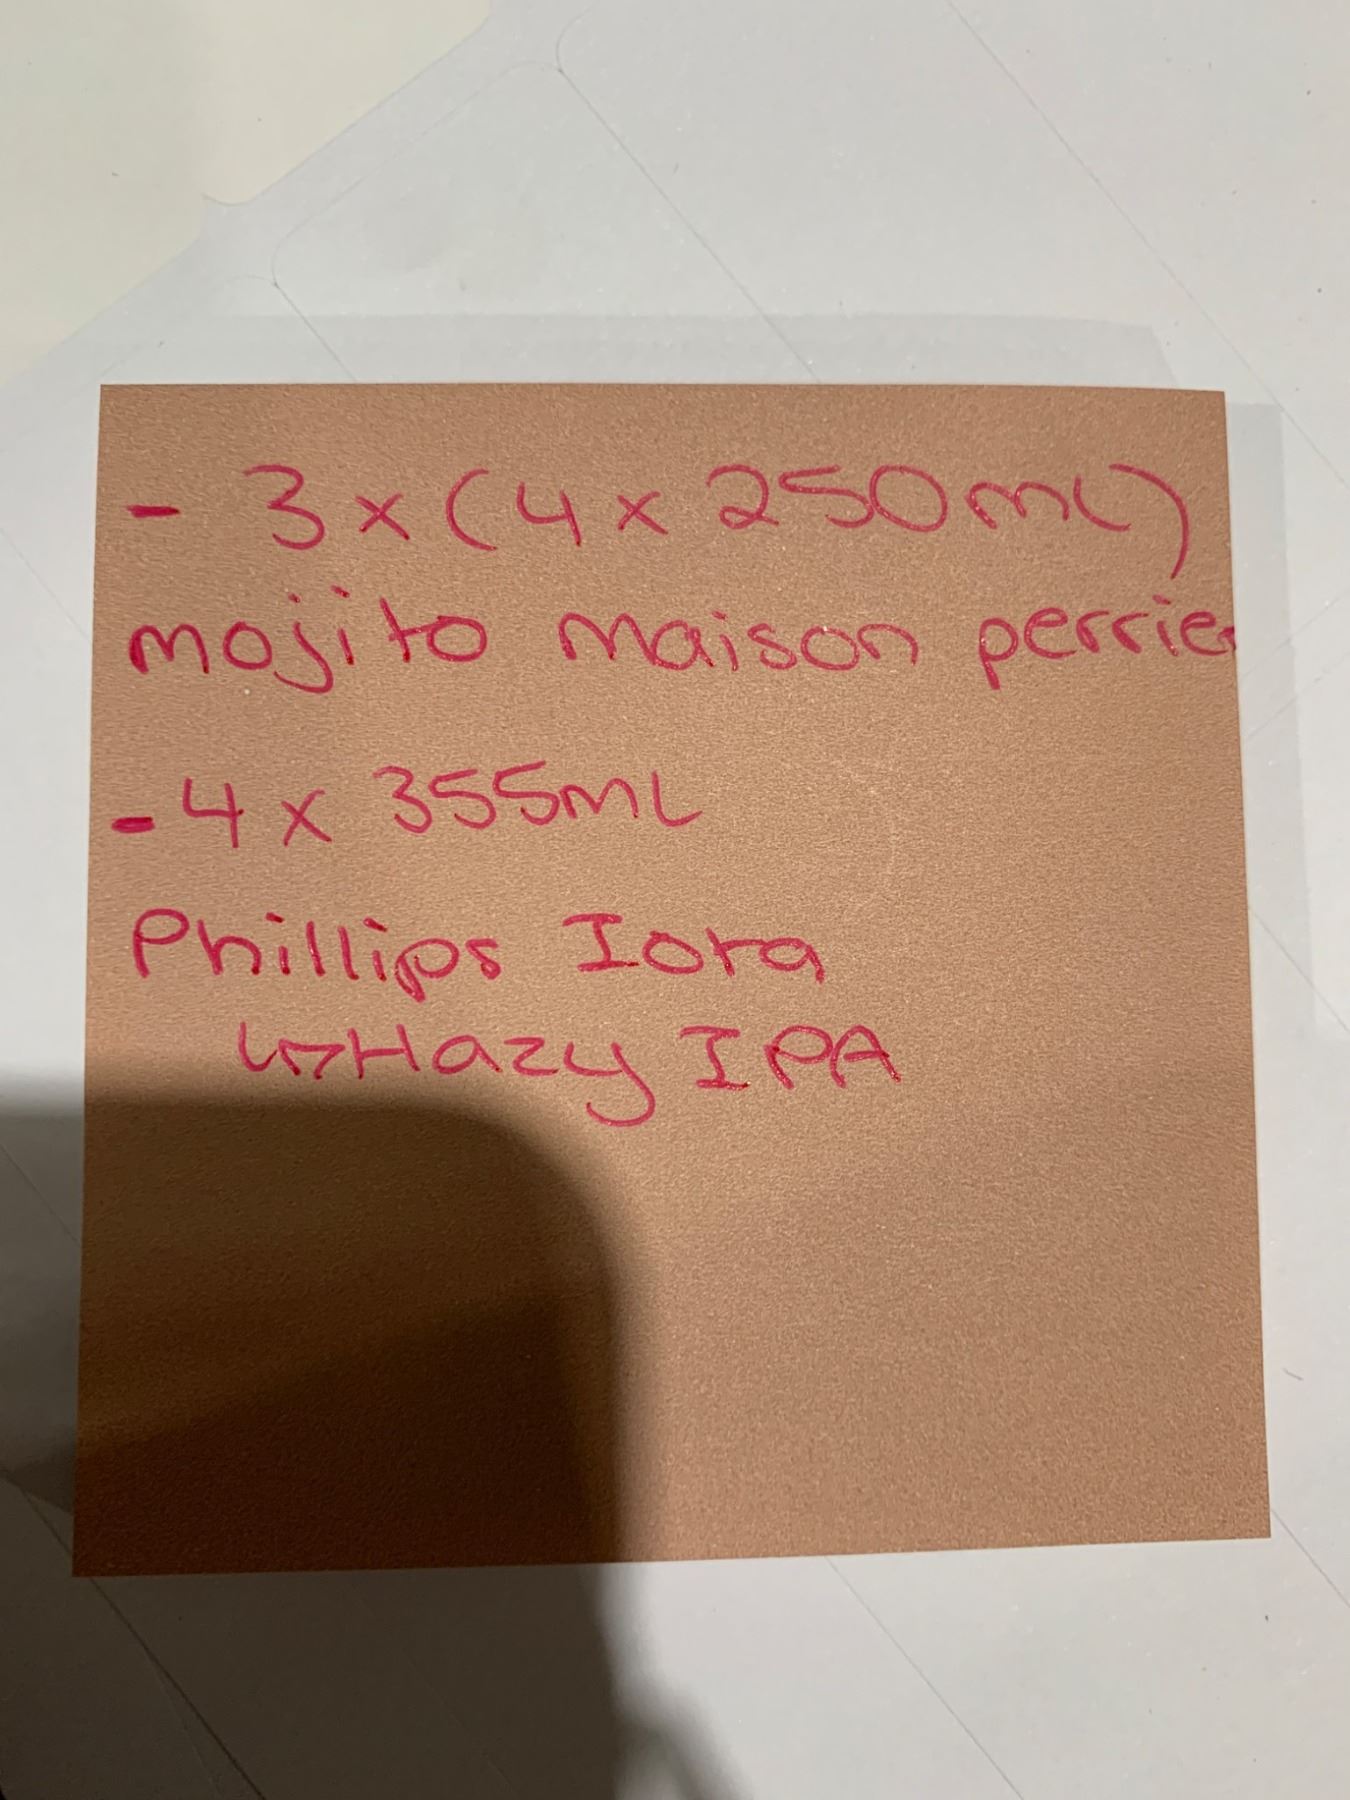 - 3 x (4 x 250mL)
mojito maison perrier
- 4 x 355mL
Phillips Iota
↳Hazy IPA